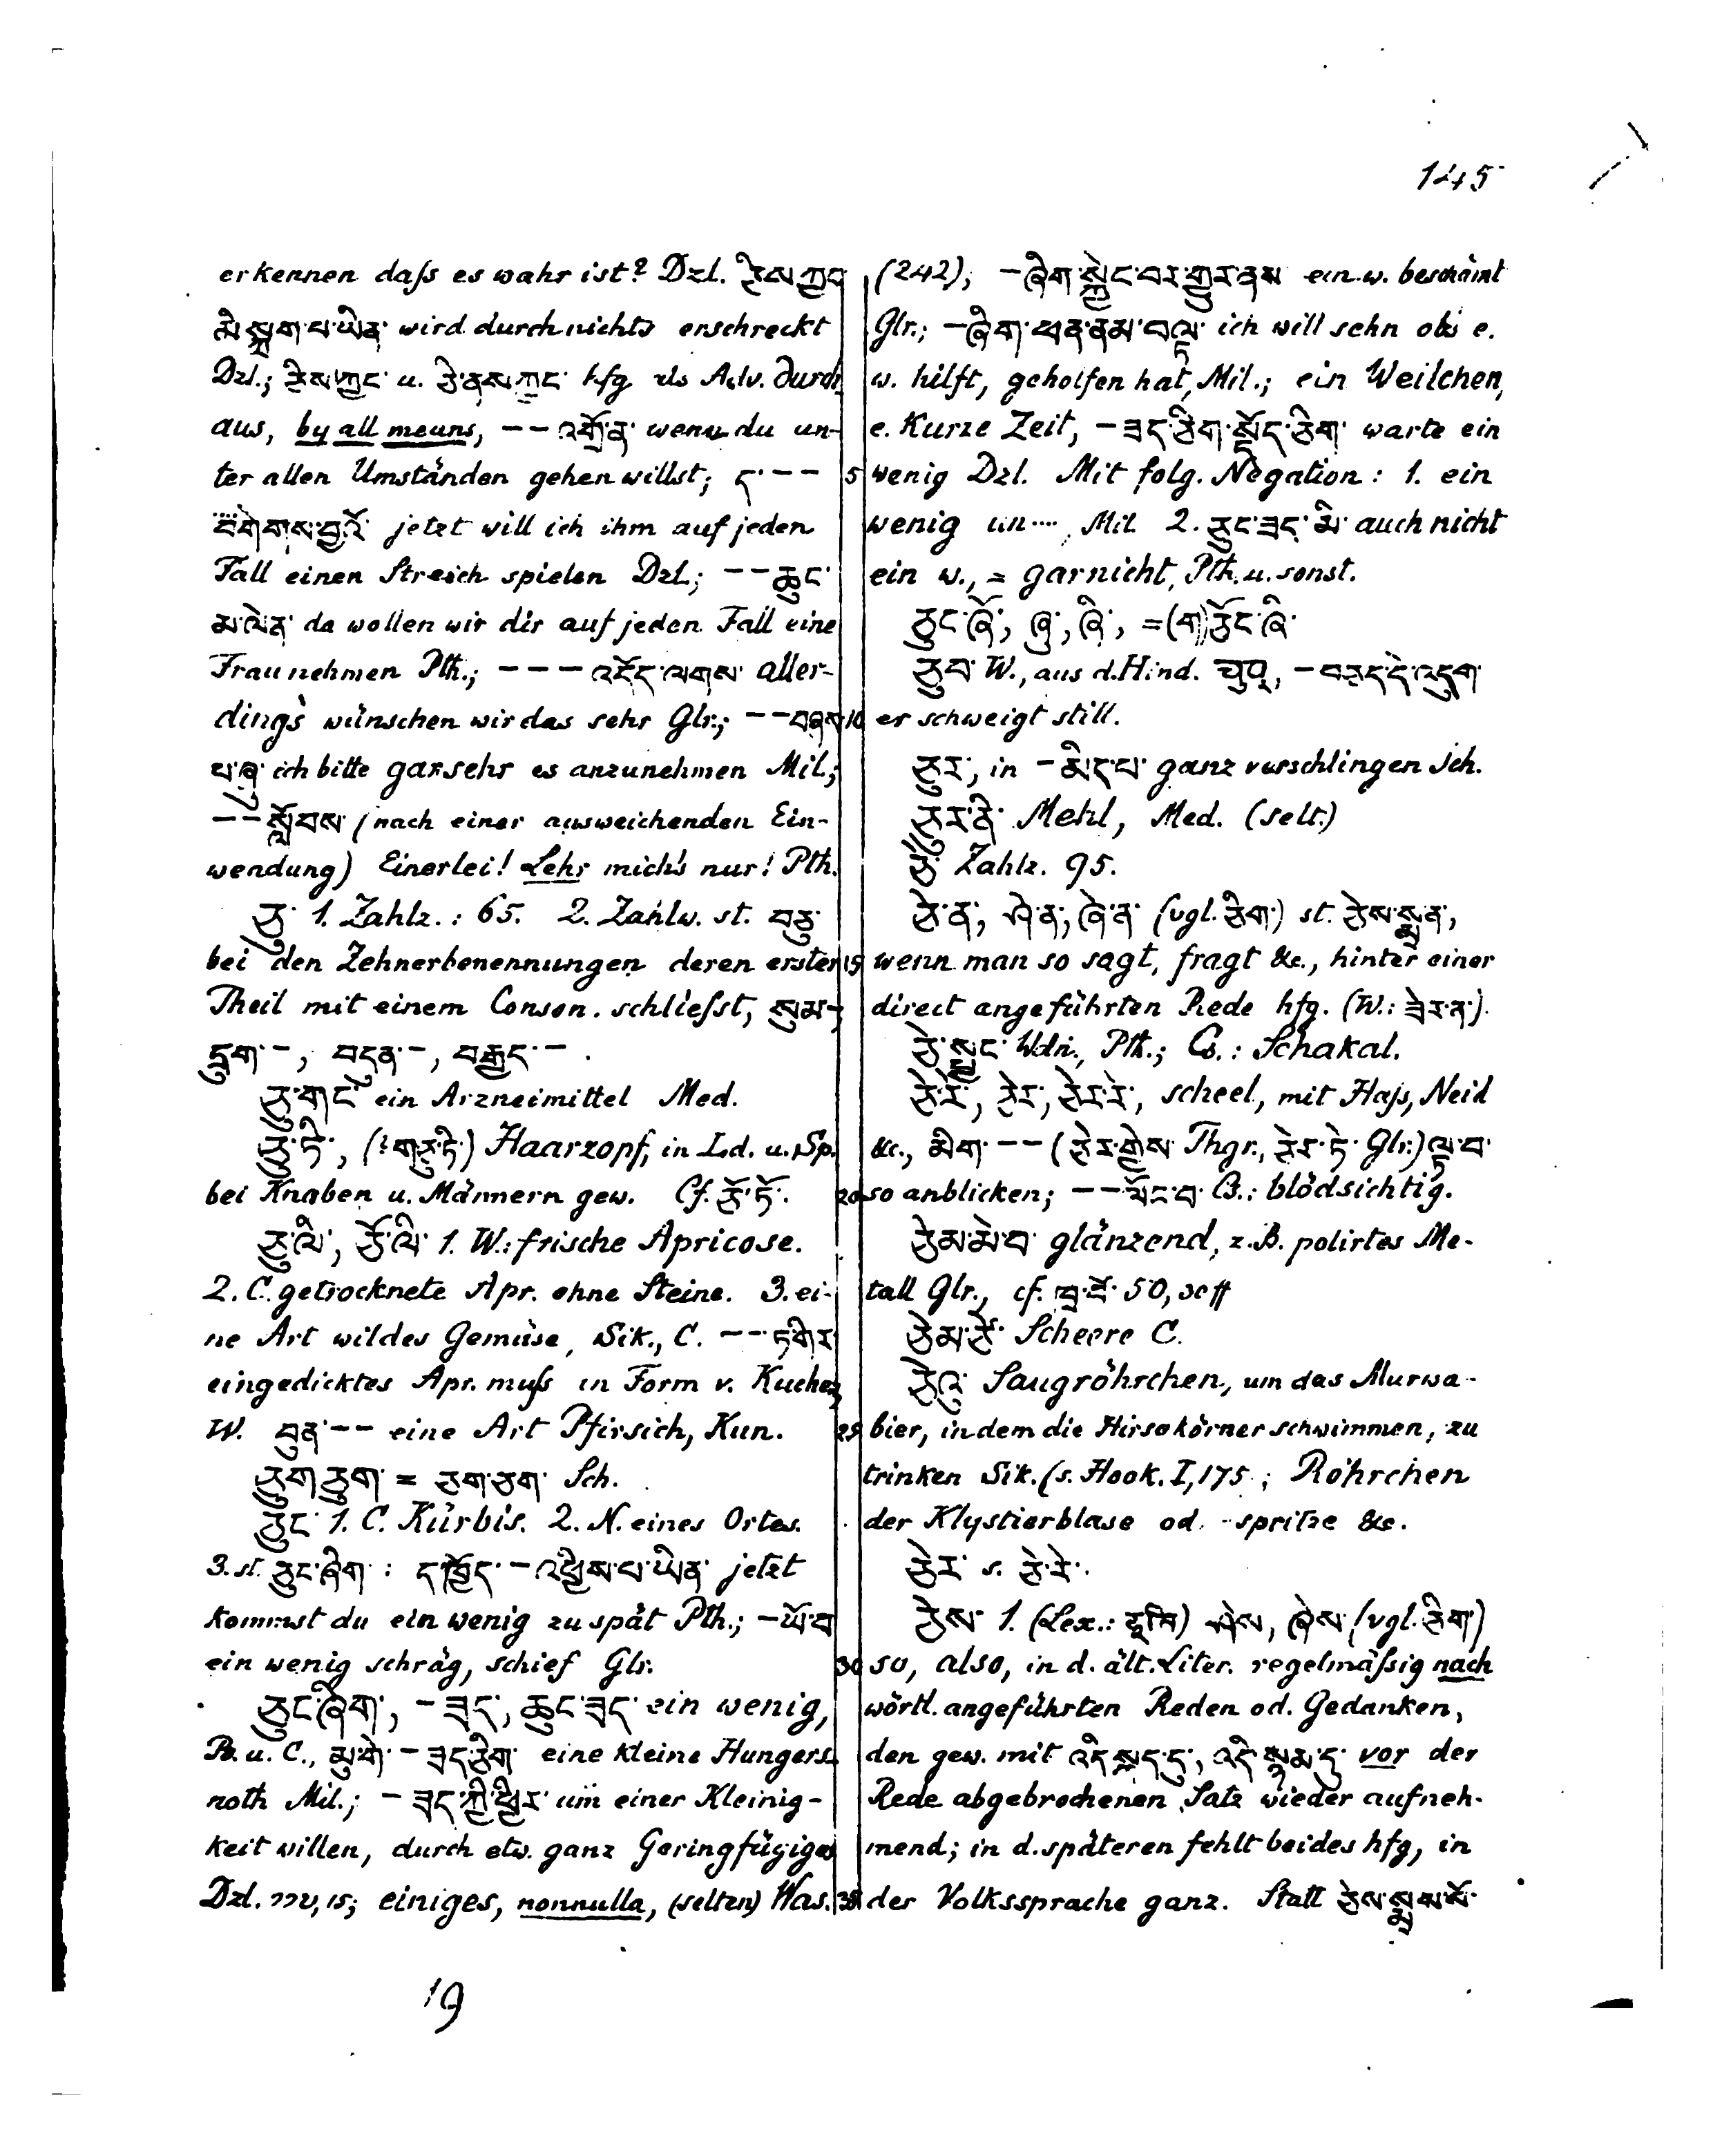 145
erkennen daſs es wahr ist? Dzl. ཅིས་ཀྱང་
མི་སྐྲག་པ་ཡིན་ wird durch nichts erschreckt
Dzl.; ཅིས་ཀྱང་ u. ཅི་ནས་ཀྱང་ hfg als Adv. durch
aus, by all means, -- འགྲོ་ན་ wenn du un-
ter allen Umständen gehen willst; ད་ --
jetzt will ich ihm auf jeden
Fall einen Streich spielen Dzl.; -- ཆུང་
མ་ལེན་ da wollen wir dir auf jeden Fall eine
Frau nehmen Pth.; --- འདོད་ལགས་ aller-
dings wünschen wir das sehr Glr.; -- བཞེས་
པ་ཞུ་ ich bitte gar sehr es anzunehmen Mil.;
-- སློབས་ (nach einer ausweichenden Ein-
wendung) Einerlei! Lehr mich's nur! Pth.
ཅུ་ 1. Zahlz.: 65. 2. Zahlw. st. བཅུ་
bei den Zehnerbenennungen deren erster
Theil mit einem Conson. schlieſst, སུམ་-,
དྲུག་-, བདུན་-, བརྒྱད་-.
ཅུ་གང་ ein Arzneimittel Med.
ཅུ་ཏི་, (? གཅུ་ཏི་) Haarzopf, in Ld. u. Sp.
bei Knaben u. Männern gew. Cf. ཅོ་ཏོ་.
ཅུ་ལི་, ཅོ་ལི་ 1. W.: frische Apricose.
2. C. getrocknete Apr. ohne Steine. 3. ei-
ne Art wildes Gemüse, Sik., C. -- ཏ་གིར་
eingedicktes Apr. muſs in Form v. Kuchen,
W. བུན་ -- eine Art Pfirsich, Kun.
ཅུག་ཅུག་ = ཅག་ཅག་ Sch.
ཅུང་ 1. C. Kürbis. 2. N. eines Ortes.
3. st. ཅུང་ཞིག་: ད་ཁྱོད་ - འཕྱིས་པ་ཡིན་ jetzt
kommst du ein wenig zu spät Pth.; - ཡོ་བ་
ein wenig schräg, schief Glr.
ཅུང་ཞིག་, - ཟད་, ཆུང་ཟད་ ein wenig,
B. u. C., མུ་གེ་ - ཟད་ཅིག་ eine kleine Hungers-
noth Mil.; - ཟད་ཀྱི་ཕྱིར་ um einer Kleinig-
keit willen, durch etw. ganz Geringfügiges
Dzl. 15; einiges, nonnulla, (selten) Was.
(242); - ཞིག་སྐྱེང་བར་གྱུར་ནས་ ein w. beschämt
Glr.; - ཞིག་ཕན་ནམ་བལྟ་ ich will sehn ob's e.
w. hilft, geholfen hat, Mil.; ein Weilchen,
e. kurze Zeit, - ཟད་ཅིག་སྡོད་ཅིག་ warte ein
5 wenig Dzl. Mit folg. Negation: 1. ein
wenig un.... Mil. 2. ཅུང་ཟད་མི་ auch nicht
ein w., = gar nicht, Pth. u. sonst.
ཅུང་ཞོ་, ཞུ་, ཞི་, = (ག)ཅོང་ཞི་
ཅུབ་ W., aus d. Hind. चुप्, - བཅད་དེ་འདུག་
10 er schweigt still.
ཅུར་, in - མིད་པ་ ganz verschlingen Sch.
ཅུར་ནི་ Mehl, Med. (selt.)
ཅེ་ Zahlz. 95.
ཅེ་ན་, ཤེ་ན་, ཞེ་ན་ (vgl. ཅིག་) st. ཅེས་སྨྲན་,
15 wenn man so sagt, fragt &c., hinter einer
direct angeführten Rede hfg. (W.: ཟེར་ན་).
ཅེ་སྤྱང་ Wdn., Pth.; Cs.: Schakal.
ཅེ་རེ་, ཅེར་, ཅེར་རེ་, scheel, mit Haſs, Neid
&c., མིག་ -- (ཅེར་གྱིས་ Thgr., ཅེར་ཏེ་ Glr.) ལྟ་བ་
20 so anblicken; -- ལོང་བ་ B.: blödsichtig.
ཅེམ་མེ་བ་ glänzend, z.B. polirtes Me-
tall Glr., cf. 50, 30 ff
ཅེམ་ཙེ་ Scheere C.
ཅེའུ་ Saugröhrchen, um das Murwa-
25 bier, in dem die Hirsekörner schwimmen, zu
trinken Sik. (s. Hook. I, 175; Röhrchen
der Klystierblase od. -spritze &c.
ཅེར་ s. ཅེ་རེ་.
ཅེས་ 1. (Lex.: इति) ཤེས་, ཞེས་ (vgl. ཅིག་)
30 so, also, in d. ält. Liter. regelmäſsig nach
wörtl. angeführten Reden od. Gedanken,
den gew. mit འདི་སྐད་དུ་, འདི་སྙམ་དུ་ vor der
Rede abgebrochenen Satz wieder aufneh-
mend; in d. späteren fehlt beides hfg, in
35 der Volkssprache ganz. Statt ཅེས་སྨྲས་སོ་
19